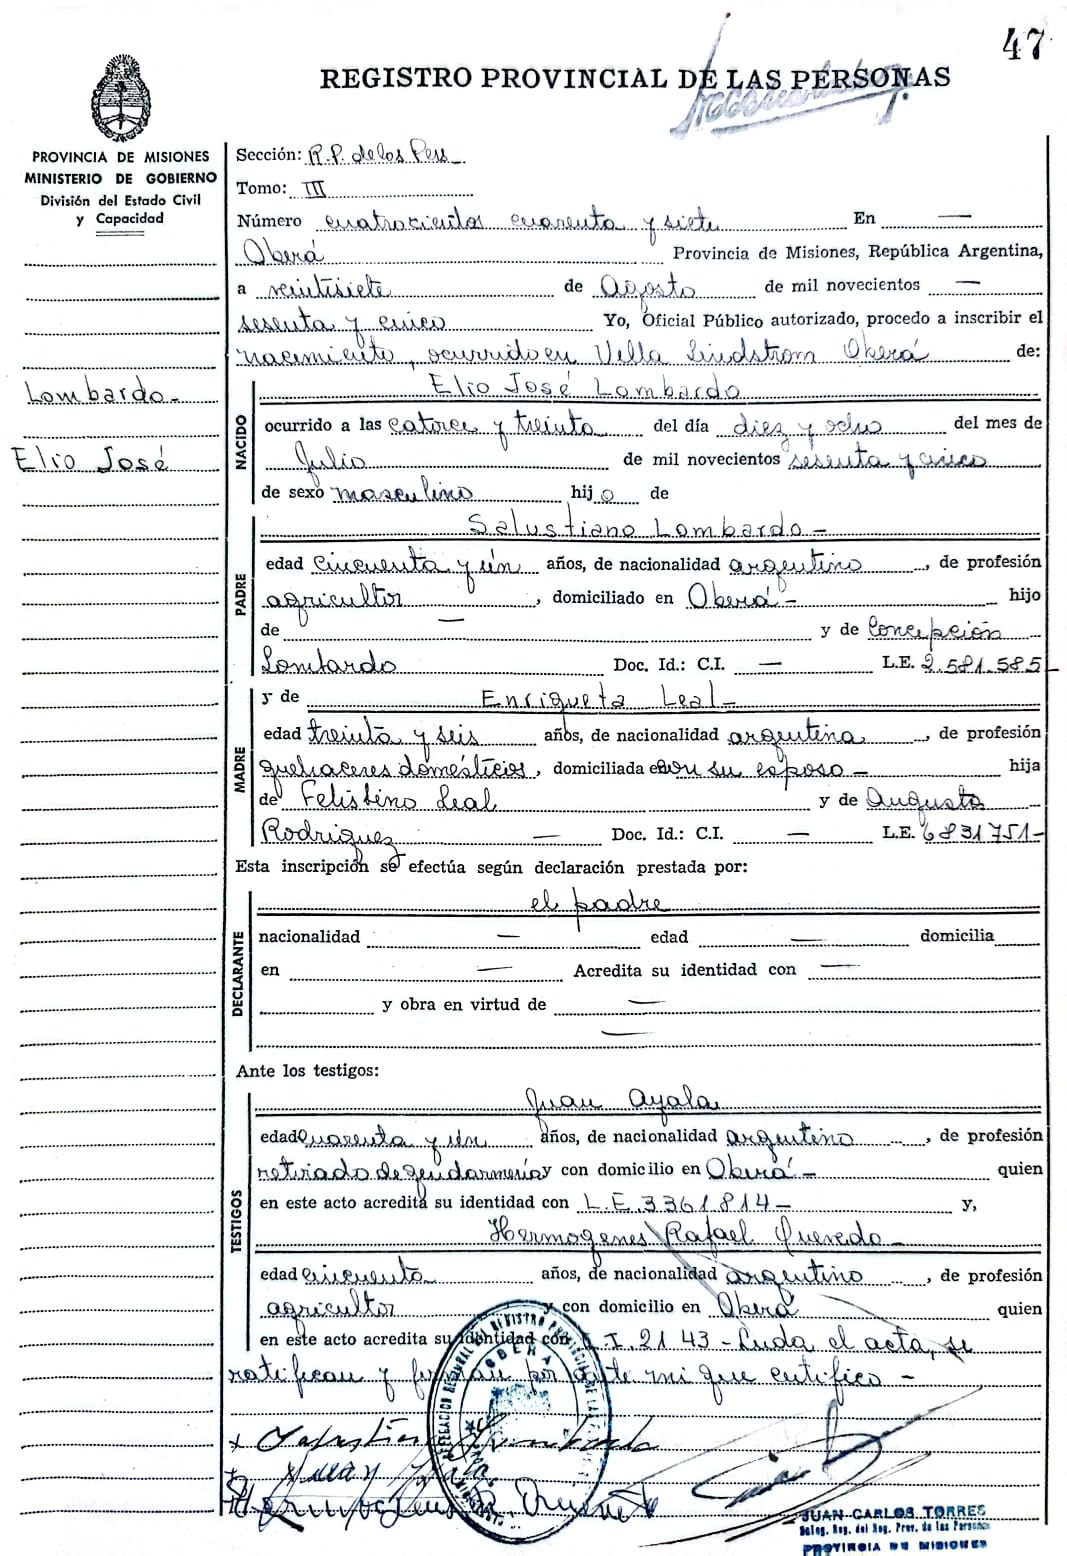 47
REGISTRO PROVINCIAL DE LAS PERSONAS
PROVINCIA DE MISIONES
MINISTERIO DE GOBIERNO
División del Estado Civil
y Capacidad
Lombardo-
Elio José
Sección: R.P. de los Pers
Tomo: III
Número cuatrocientos cuarenta y siete En —
Oberá Provincia de Misiones, República Argentina,
a veintisiete de Agosto de mil novecientos —
sesenta y cinco Yo, Oficial Público autorizado, procedo a inscribir el
nacimiento, ocurrido en Villa Lindstrom Oberá de:
NACIDO
Elio José Lombardo
ocurrido a las catorce y treinta del día diez y ocho del mes de
Julio de mil novecientos sesenta y cinco
de sexo masculino hijo de
PADRE
Salustiano Lombardo-
edad cincuenta y ún años, de nacionalidad argentino, de profesión
agricultor, domiciliado en Oberá- hijo
de — y de Concepción
Lombardo Doc. Id.: C.I. — L.E. 2.581.585-
MADRE
y de Enriqueta Leal-
edad treinta y seis años, de nacionalidad argentina, de profesión
quehaceres domésticos, domiciliada con su esposo- hija
de Felistino Leal y de Augusta
Rodriguez — Doc. Id.: C.I. — L.E. 6831751-
Esta inscripción se efectúa según declaración prestada por:
DECLARANTE
el padre
nacionalidad — edad — domicilia
en — Acredita su identidad con —
y obra en virtud de —
—
Ante los testigos:
TESTIGOS
Juan Ayala
edad cuarenta y ún años, de nacionalidad argentino, de profesión
retirado de gendarmería y con domicilio en Oberá- quien
en este acto acredita su identidad con L.E. 3361814- y,
Hermogenes Rafael Quevedo-
edad cincuenta años, de nacionalidad argentino, de profesión
agricultor y con domicilio en Oberá quien
en este acto acredita su identidad con C.I. 2143- Leida el acta, se
ratifican y firman por ante mi que certifico-
OBERA
JUAN CARLOS TORRES
Deleg. Reg. del Reg. Prov. de las Personas
PROVINCIA DE MISIONES